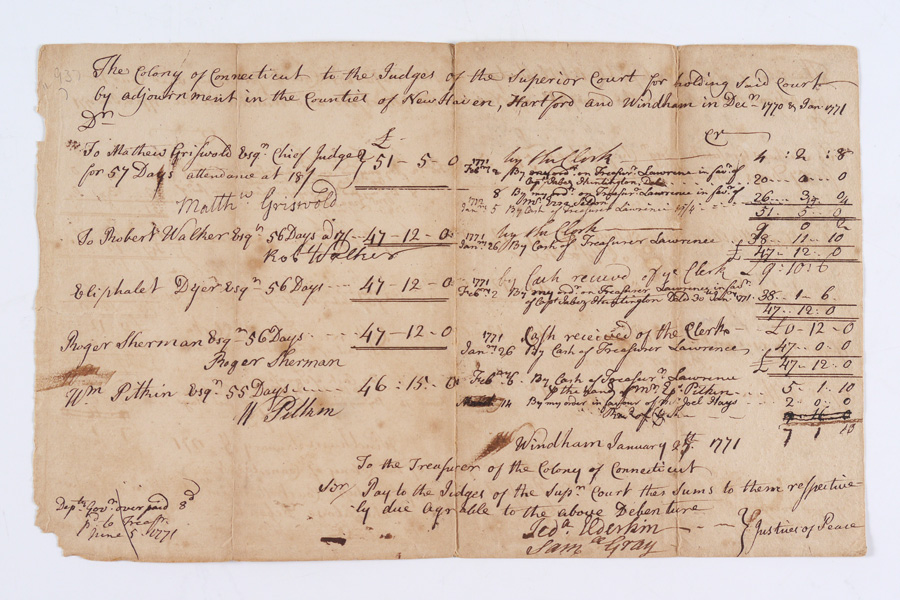 The Colony of Connecticut to the Judges of the Superior Court for holding said Court
by adjournment in the Counties of New Haven, Hartford and Windham in Decr 1770 & Jan 1771
Dr
Cr
£
To Mathew Griswold Esqr Chief Judge
for 57 Days attendance at 18/
51 - 5 - 0
Matthw Griswold
by the Clerk 4 : 2 : 8
1771 Febr 2 By my ord. on Treasr Lawrence in favr of
Capt Jabez Huntington 20 0 0
8 By my ord. on Treasr Lawrence in favr of
Mr 26
5 By Cash of Treasurer Lawrence
51 5 0
To Robert Walker Esqr 56 Days a 17/ 47 - 12 - 0
Rob Walker
by the Clerk 9 0 2
1771 Janry 26 By Cash of Treasurer Lawrence 38 - 11 - 10
£ 47 - 12 - 0
Eliphalet Dyer Esqr 56 Days 47 - 12 - 0
by Cash received of ye Clerk £ 9 : 10 : 6
1771 Febr 2 By my ordr on Treasurer Lawrence in favr
of Capt Jabez Huntington Dtd 30 Janry 1771. 38 - 1 - 6
47 . 12 : 0
Roger Sherman Esqr 56 Days 47 - 12 - 0
Roger Sherman
Cash received of the Clerk £0 - 12 - 0
1771 Janry 26 By Cash of Treasurer Lawrence 47 - 0 - 0
£ 47 - 12 - 0
Wm Pitkin Esqr 55 Days 46 : 15 : 0
W Pitkin
Febr 6. By Cash of Treasurr Lawrence
to the hand of Mr Pitkin 5 . 1 . 10
14 By my order in favour of Mr Joel Hays 2 . 0 . 0
7 1 10
Windham January 1771
To the Treasurer of the Colony of Connecticut
Sir Pay to the Judges of the Supr Court the Sums to them respective
ly due agreable to the above Debenture
Jedh Elderkin
Saml Gray
Justices of Peace
Depty Govr overpaid 8d
pd to Treasr
June 5 1771